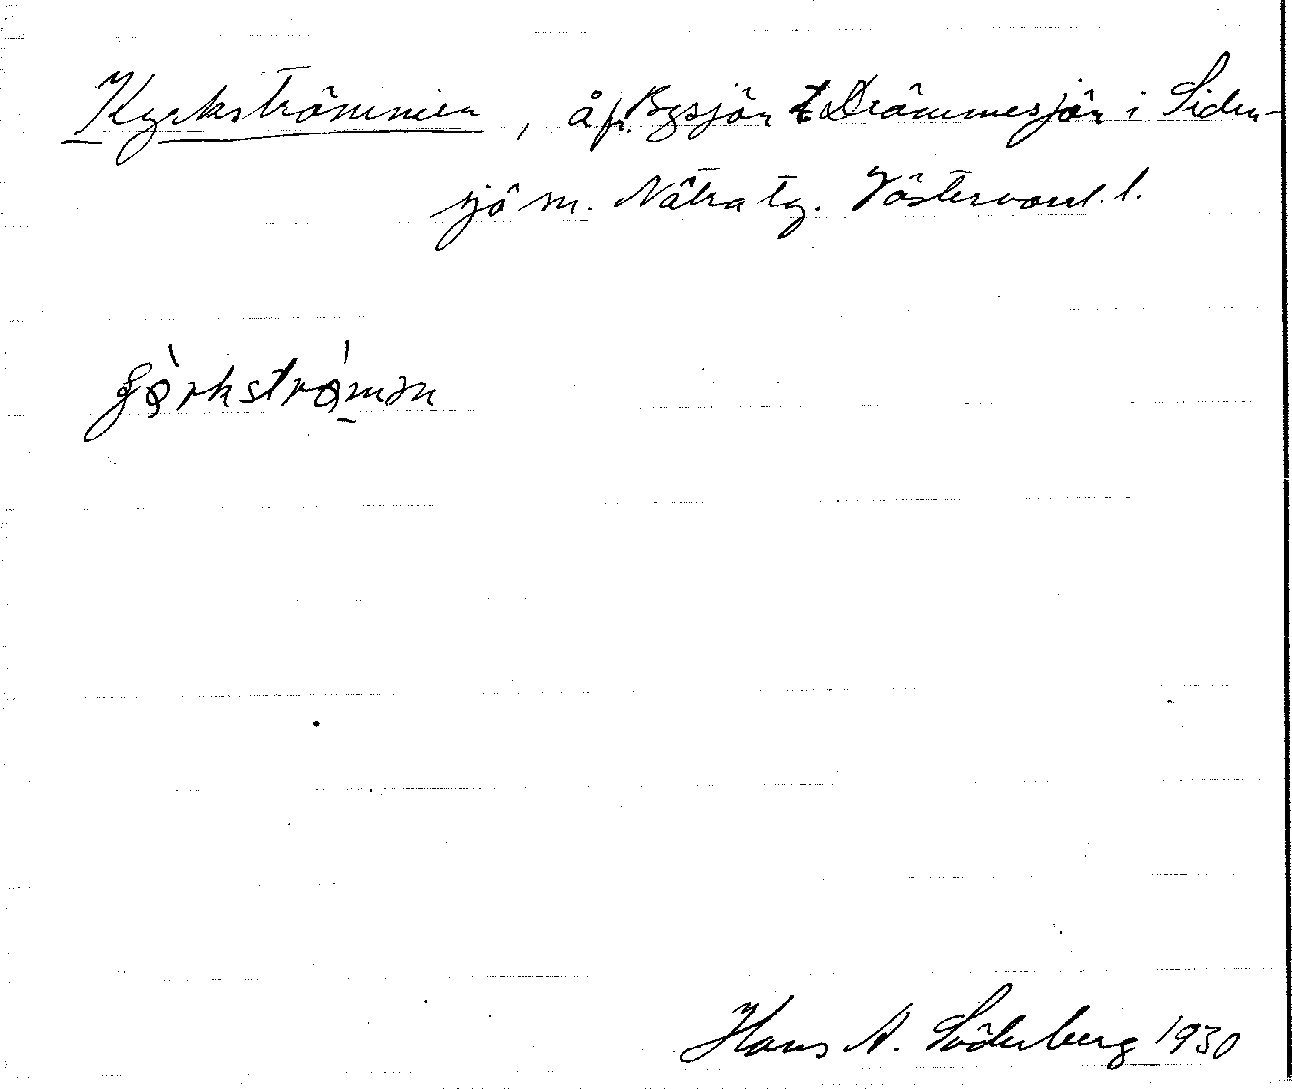 Kyrkströmmen, å fr. Bysjön t Drömmesjön i Siden-
sjö sn. Nätra tg. Västernorrl. l.
Hans A. Söderberg 1930